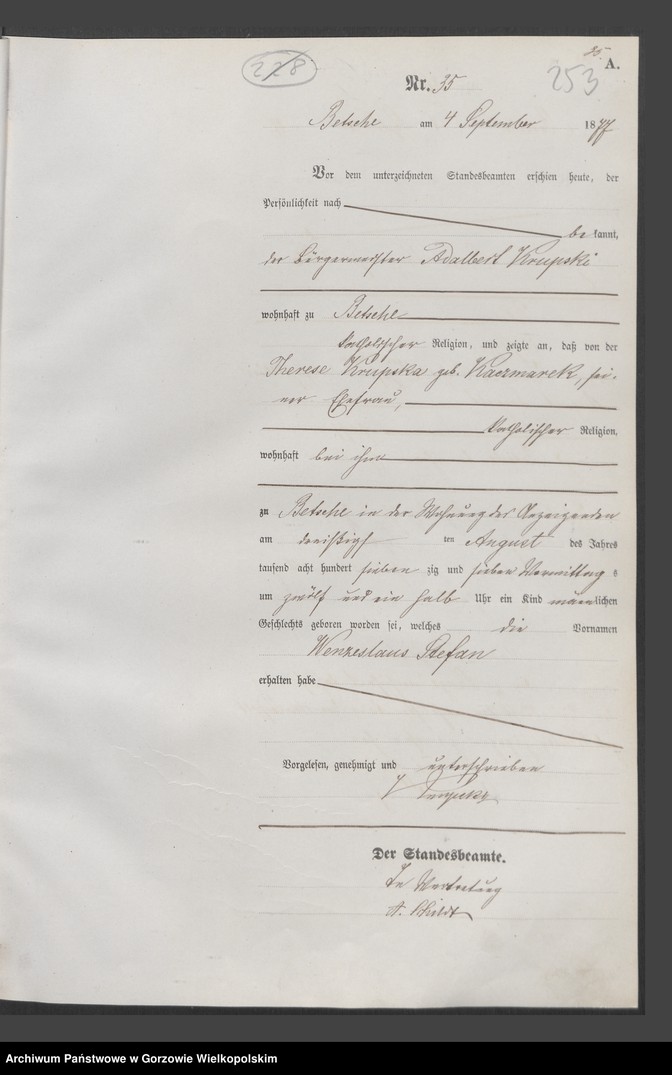 35
A.
228
253
Nr. 35
Betsche am 4 September 1877
Vor dem unterzeichneten Standesbeamten erschien heute, der
Persönlichkeit nach
bekannt,
der Bürgermeister Adalbert Krupski
wohnhaft zu Betsche
katholischer Religion, und zeigte an, daß von der
Therese Krupska geb. Kaczmarek, sei-
ner Ehefrau,
katholischer Religion,
wohnhaft bei ihm
zu Betsche in der Wohnung des Anzeigenden
am dreißigst ten August des Jahres
tausend acht hundert sieben zig und sieben Vormittag s
um zwölf und ein halb Uhr ein Kind männlichen
Geschlechts geboren worden sei, welches die Vornamen
Wenzeslaus Stefan
erhalten habe
Vorgelesen, genehmigt und unterschrieben
Der Standesbeamte.
In Vertretung
Archiwum Państwowe w Gorzowie Wielkopolskim